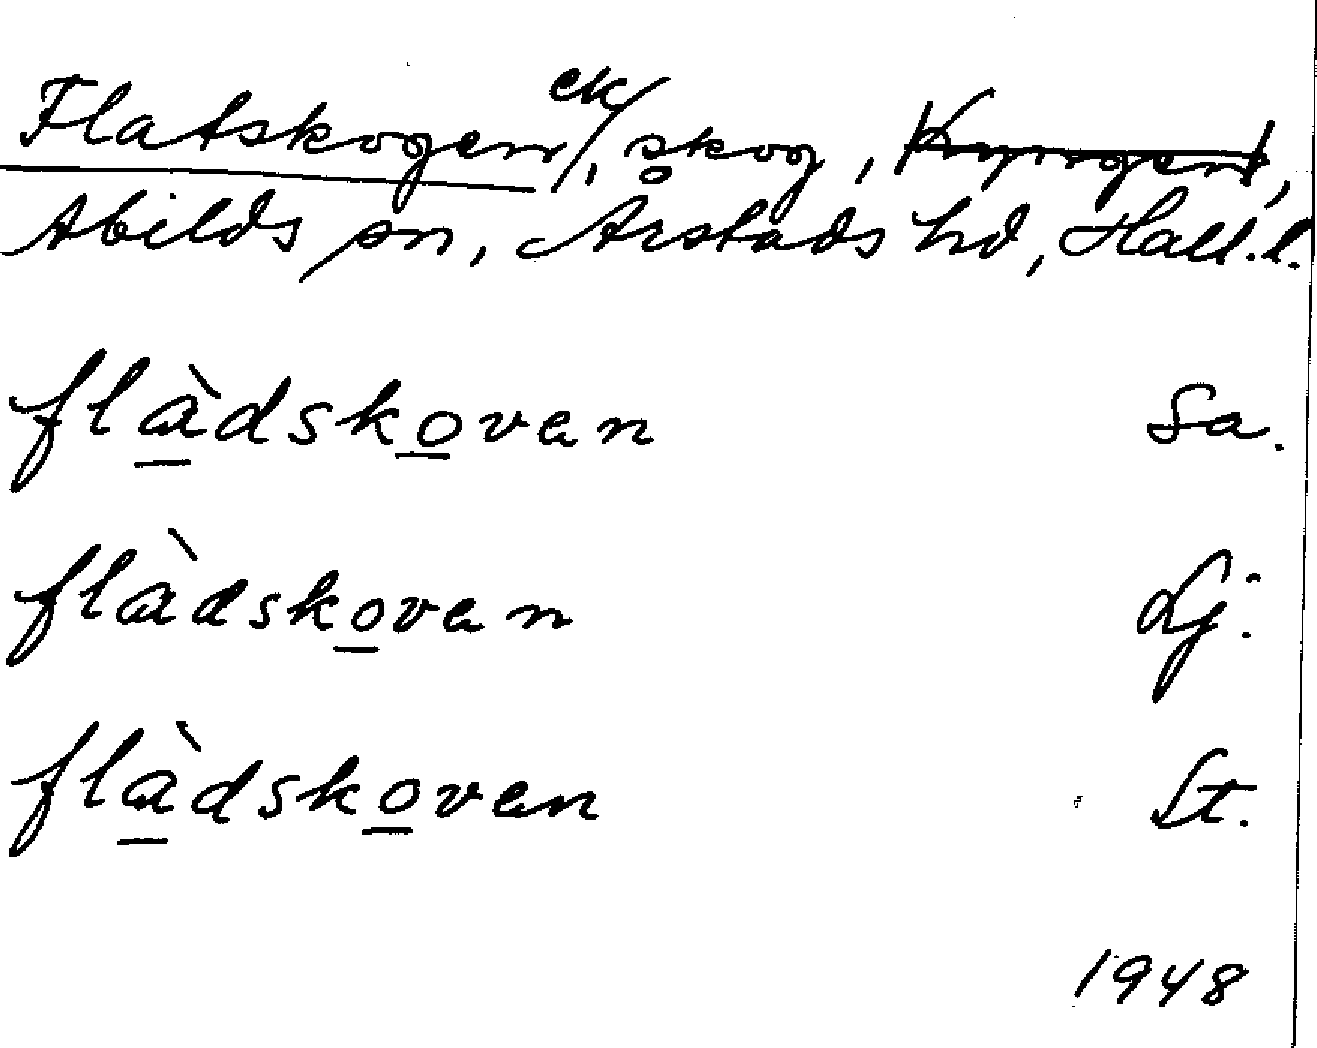 Flatskogen ek/, skog,
Abilds sn, Årstads hd, Hall. l.
flàdskoven Sa.
flàdskoven Lj.
flàdskoven St.
1948